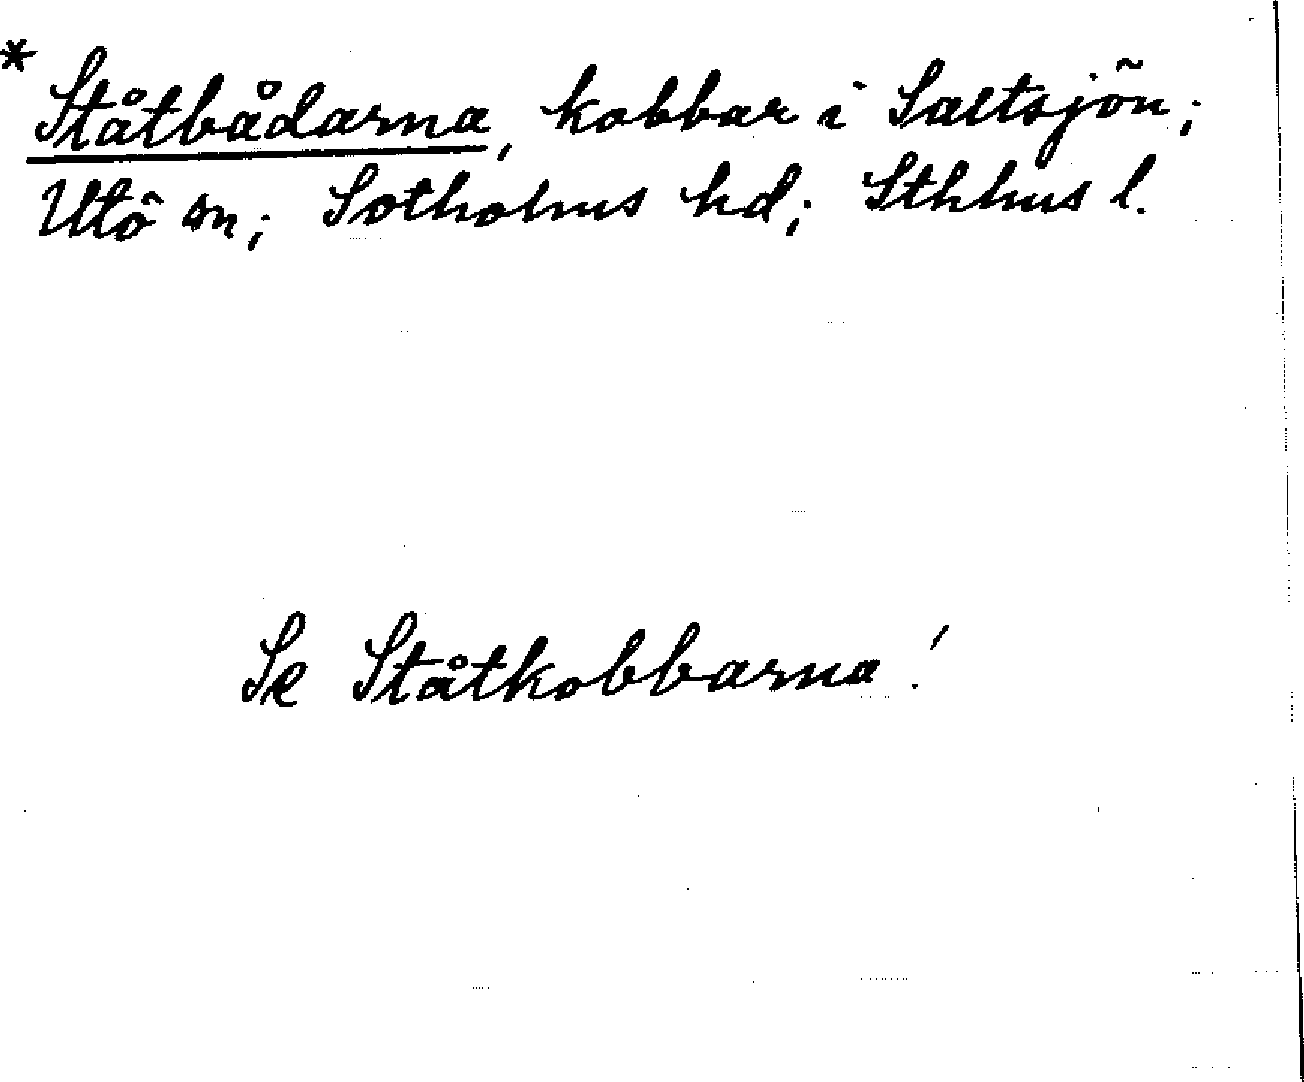 * Ståtbådarna, kobbar i Saltsjön;
Utö sn; Sotholms hd; Sthlms l.
Se Ståtkobbarna!